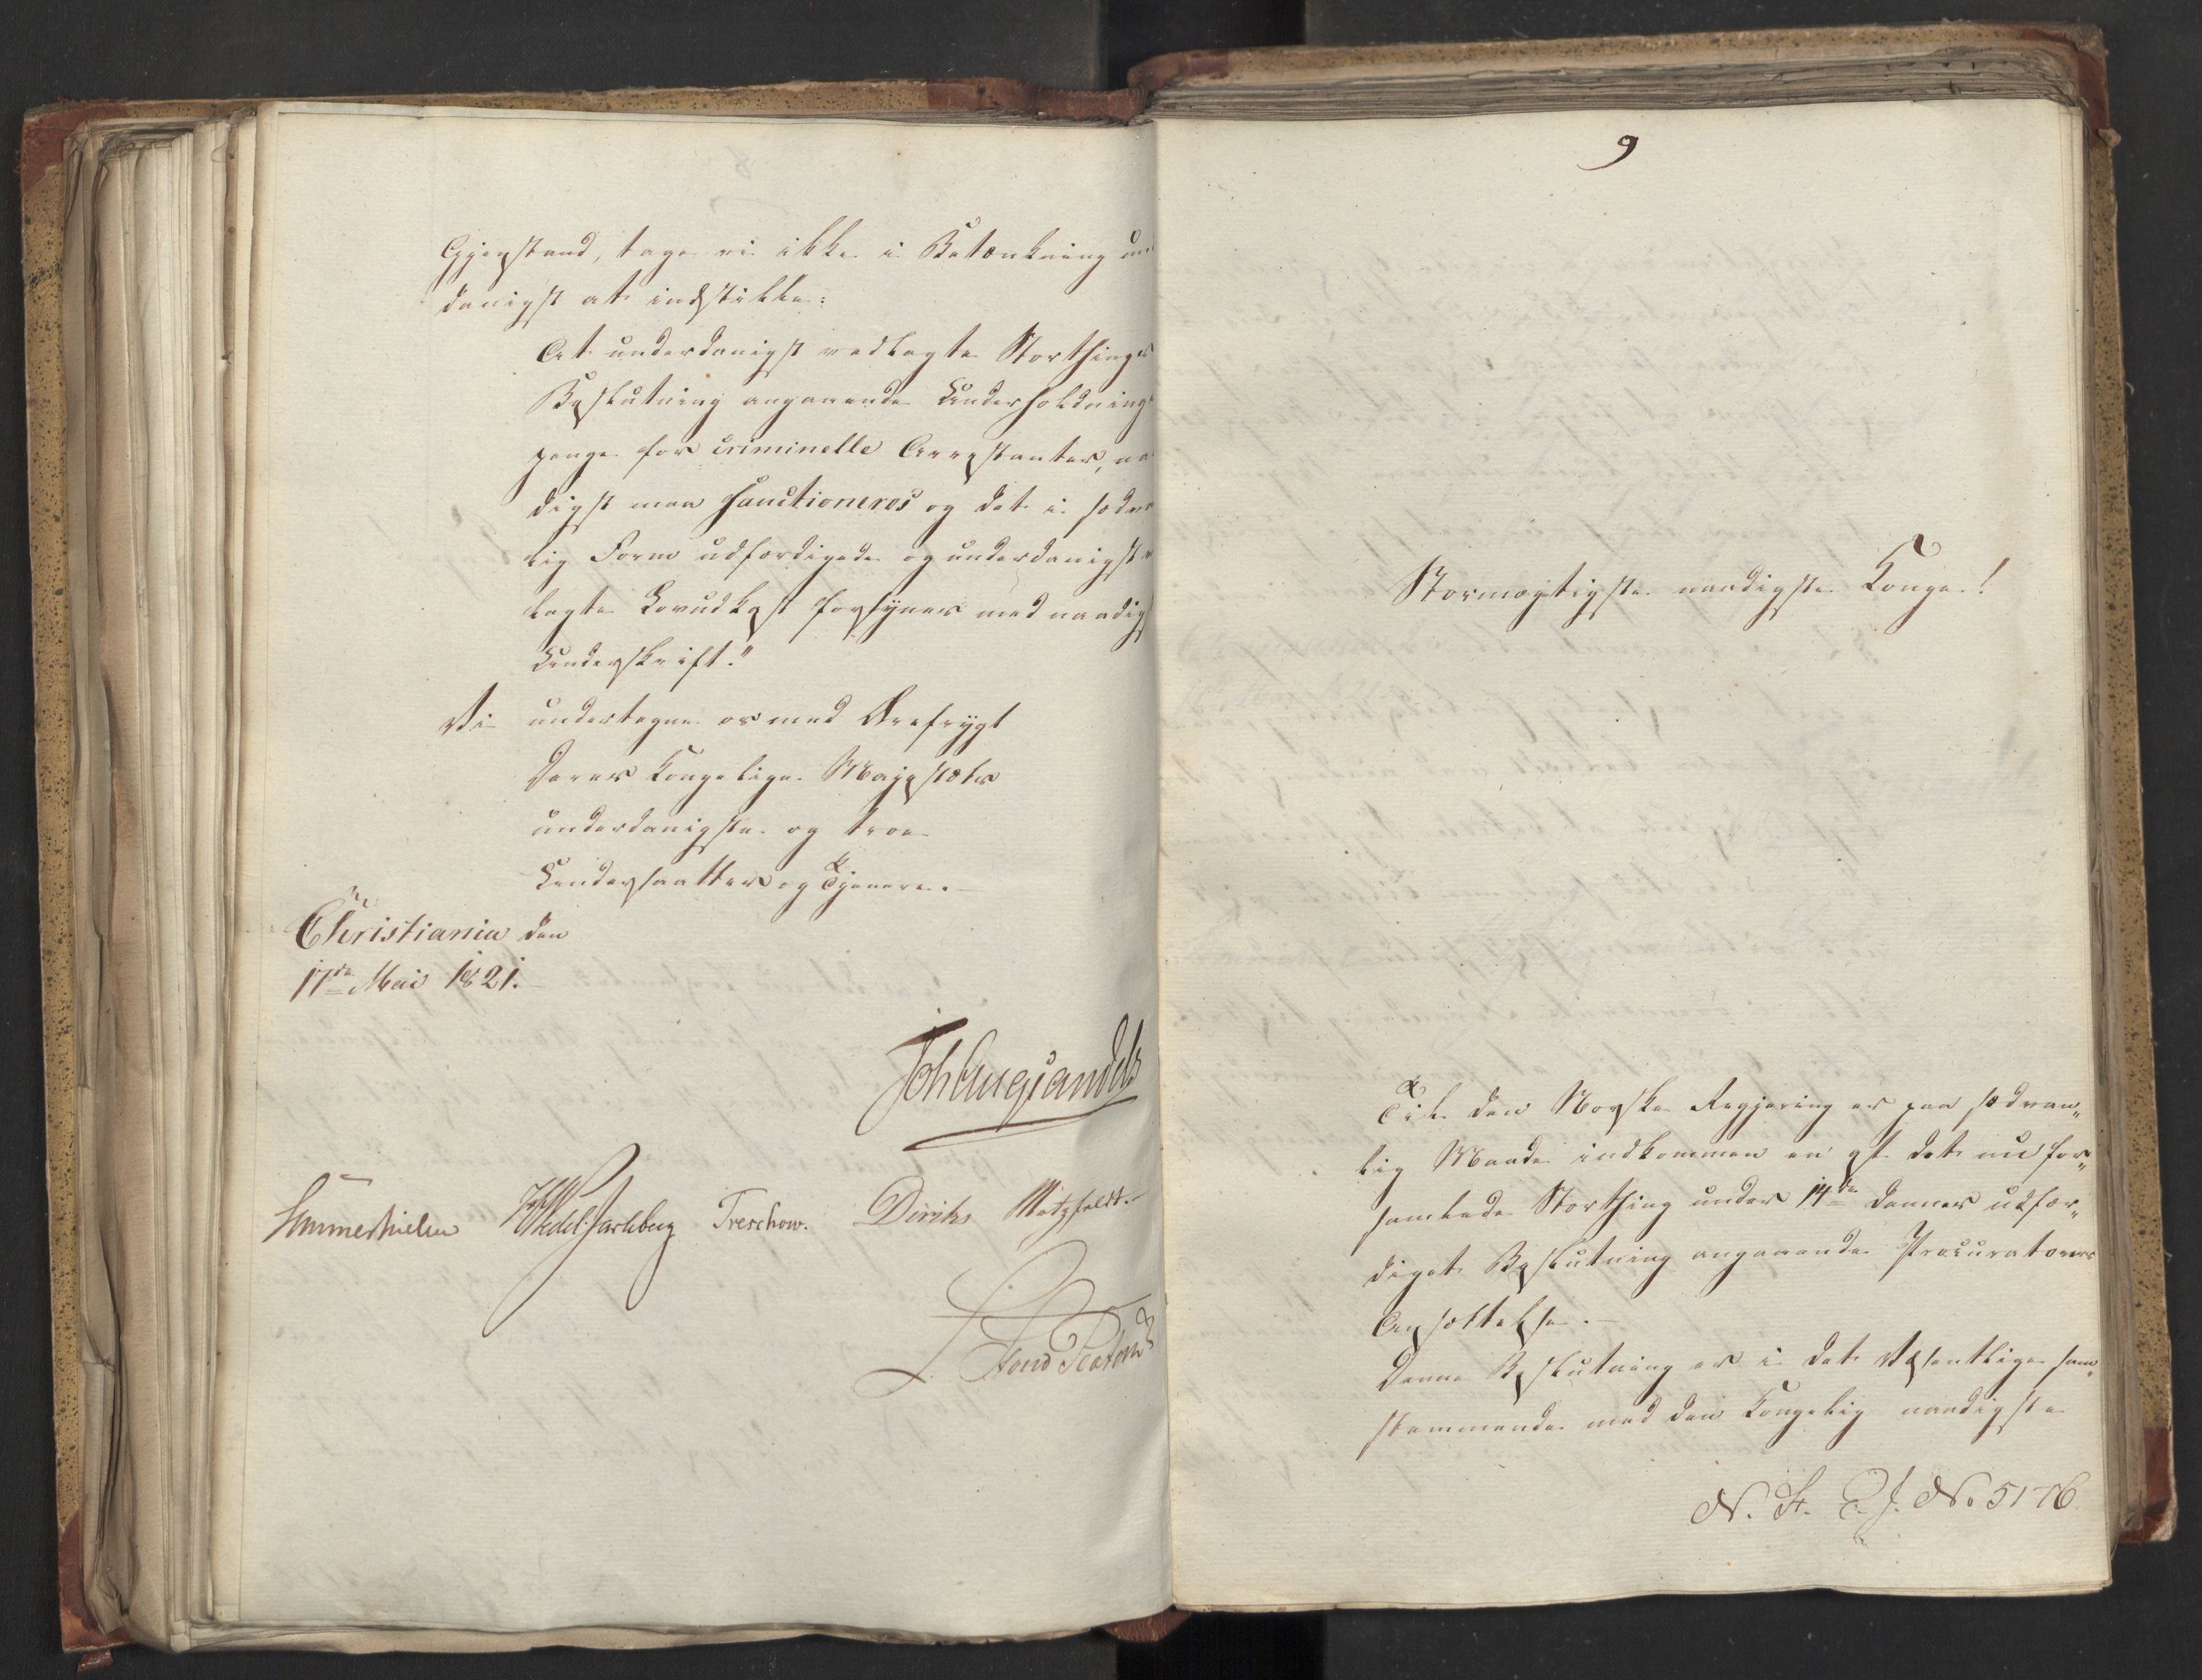 Gjenstand, tage vi ikke i Betænkning un
danigst at indstille:
At underdanigst vedlagte Storthings
Beslutning angaaende Underholdnings
penge for criminelle Arrestanter, naa
digst maa sanctioneres og det i sædvan
lig Form udfærdigede og underdanigst v
lagte Lovudkast forsynes med naadigst
Underskrift."
Vi undertegne os med Ærefrygt
Deres Kongelige Majestæts
underdanigste og troe
Undersaatter og Tjenere.
Christiania den
17de Mai 1821.
Joh Aug Sandels
Sommerhielm HWedel Jarlsberg Treschow. Diriks Motzfeldt.
9
Stormægtigste naadigste Konge!
Til den Norske Regjering er paa sædvan„
lig Maade indkommen en af det nu for„
samlede Storthing under 14de dennes udfær„
diget Beslutning angaaende Procuratorers
Ansættelse.
Denne Beslutning er i det Væsentlige sam„
stemmende med den Kongelig naadigste
N. St. E. J. No 5176